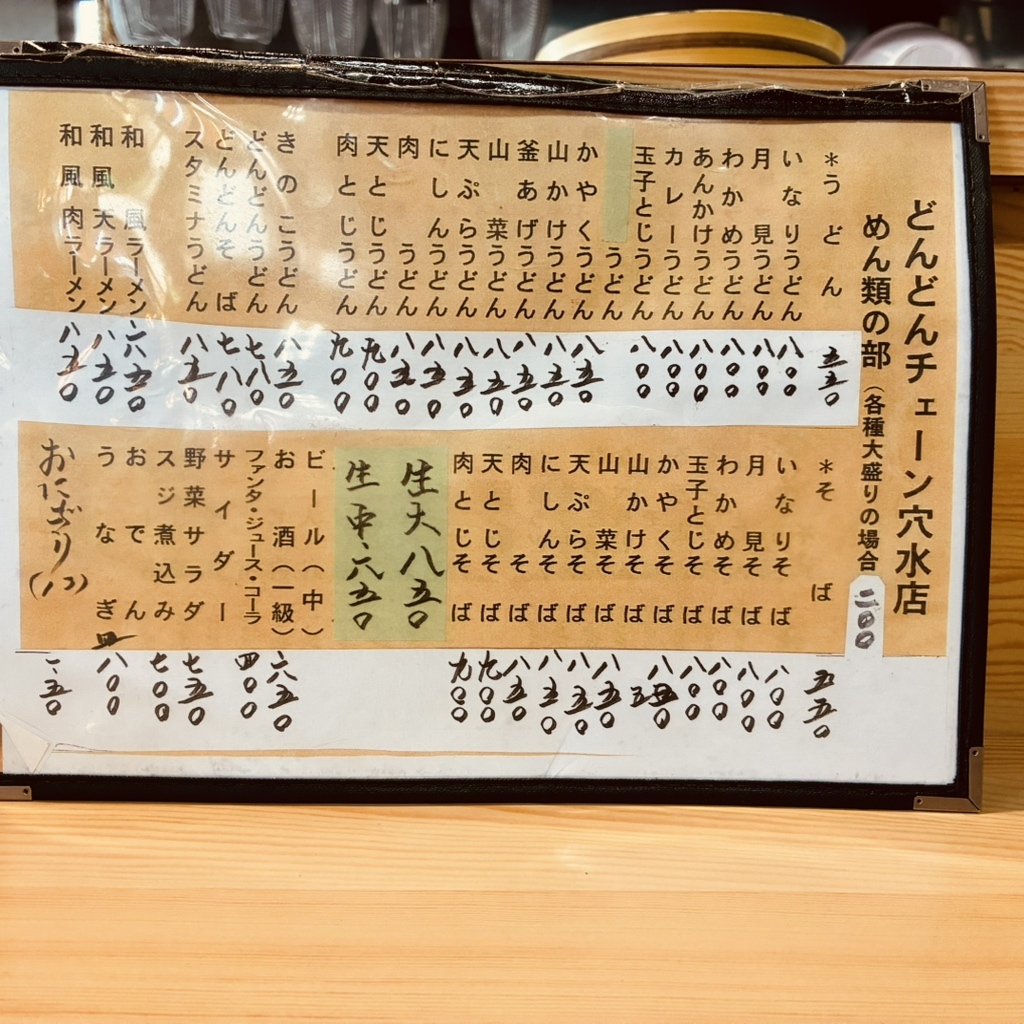 どんどんチェーン穴水店
めん類の部（各種大盛りの場合 二〇〇
＊うどん 五五〇
いなりうどん 八〇〇
月見うどん 八〇〇
わかめうどん 八〇〇
あんかけうどん 八〇〇
カレーうどん 八〇〇
玉子とじうどん 八〇〇
うどん
かやくうどん 八五〇
山かけうどん 八五〇
釜あげうどん 八五〇
山菜うどん 八五〇
天ぷらうどん 八五〇
にしんうどん 八五〇
肉うどん 八五〇
天とじうどん 九〇〇
肉とじうどん 九〇〇
きのこうどん 八五〇
どんどんうどん 七八〇
どんどんそば 七八〇
スタミナうどん 八五〇
和風ラーメン 六五〇
和風天ラーメン 八五〇
和風肉ラーメン 八五〇
＊そば 五五〇
いなりそば 八〇〇
月見そば 八〇〇
わかめそば 八〇〇
玉子とじそば 八〇〇
かやくそば 八五〇
山かけそば
山菜そば 八五〇
天ぷらそば 八五〇
にしんそば 八五〇
肉そば 八五〇
天とじそば 九〇〇
肉とじそば 九〇〇
生大 八五〇
生中 六五〇
ビール（中）
お酒（一級） 六五〇
ファンタ・ジュース・コーラ 四〇〇
サイダー
野菜サラダ 七五〇
スジ煮込み 七〇〇
おでん
うなぎ 八〇〇
おにぎり（1コ） 一五〇